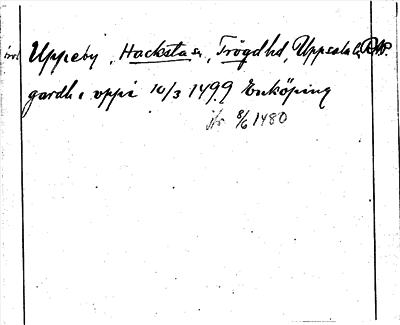 Uppeby, Hacksta sn, Trögd hd, Uppsala l, RAp.
gardh i vppi 10/3 1499 Enköping
8/6 1480